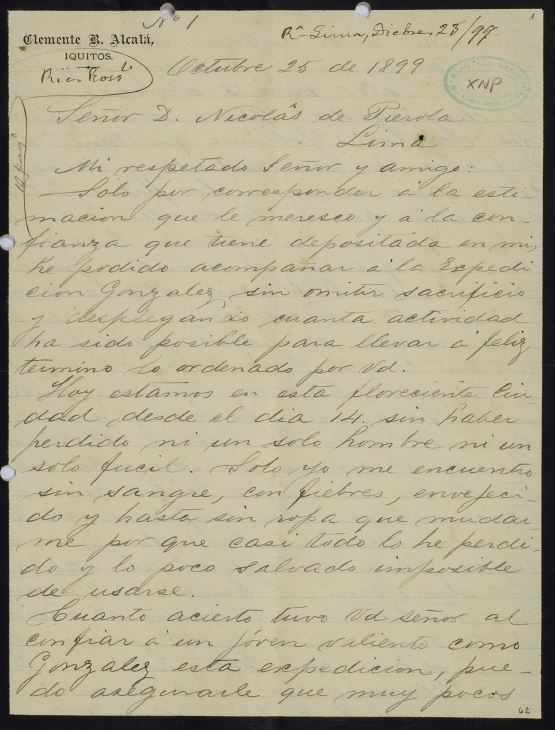 Nº 1
Rª Lima, Dicbre 23/99
1
Clemente B. Alcalá,
IQUITOS.
Octubre 25 de 1899
BIBLIOTECA NACIONAL
XNP
LIMA PERU
Señor D. Nicolás de Piérola
Lima
Mi respetado Señor y amigo:
Solo por corresponder á la esti-
macion que le meresco y á la con-
fianza que tiene depositada en mi,
he podido acompañar á la Expedi
cion Gonzalez, sin omitir sacrificio
y desplegando cuanta actividad
ha sido posible para llevar á feliz
termino lo ordenado por Vd.
Hoy estamos en esta floreciente Ciu
dad desde el dia 14. sin haber
perdido ni un solo hombre ni un
solo fucil. Solo yo me encuentro
sin sangre, con fiebres, envejeci-
do y hasta sin ropa que mudar-
me por que casi todo lo he perdi-
do y lo poco salvado imposible
de usarse.
Cuanto acierto tuvo Vd señor al
confiar á un jóven valiente como
Gonzalez esta expedicion, pue-
do asegurarle que muy pocos
62